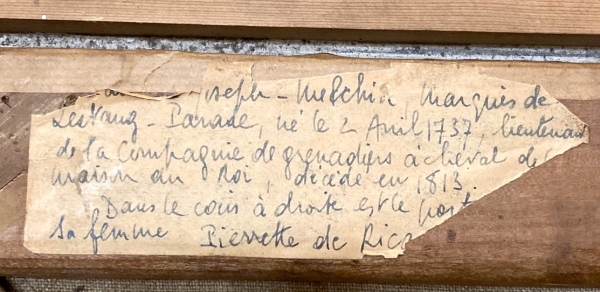 Joseph-Melchior, marquis de
Lestang-Parade, né le 2 Avril 1737, lieutenant
de la Compagnie de grenadiers à cheval de
maison du Roi, décédé en 1813.
Dans le coin à droite est le port
sa femme Pierrette de Rico